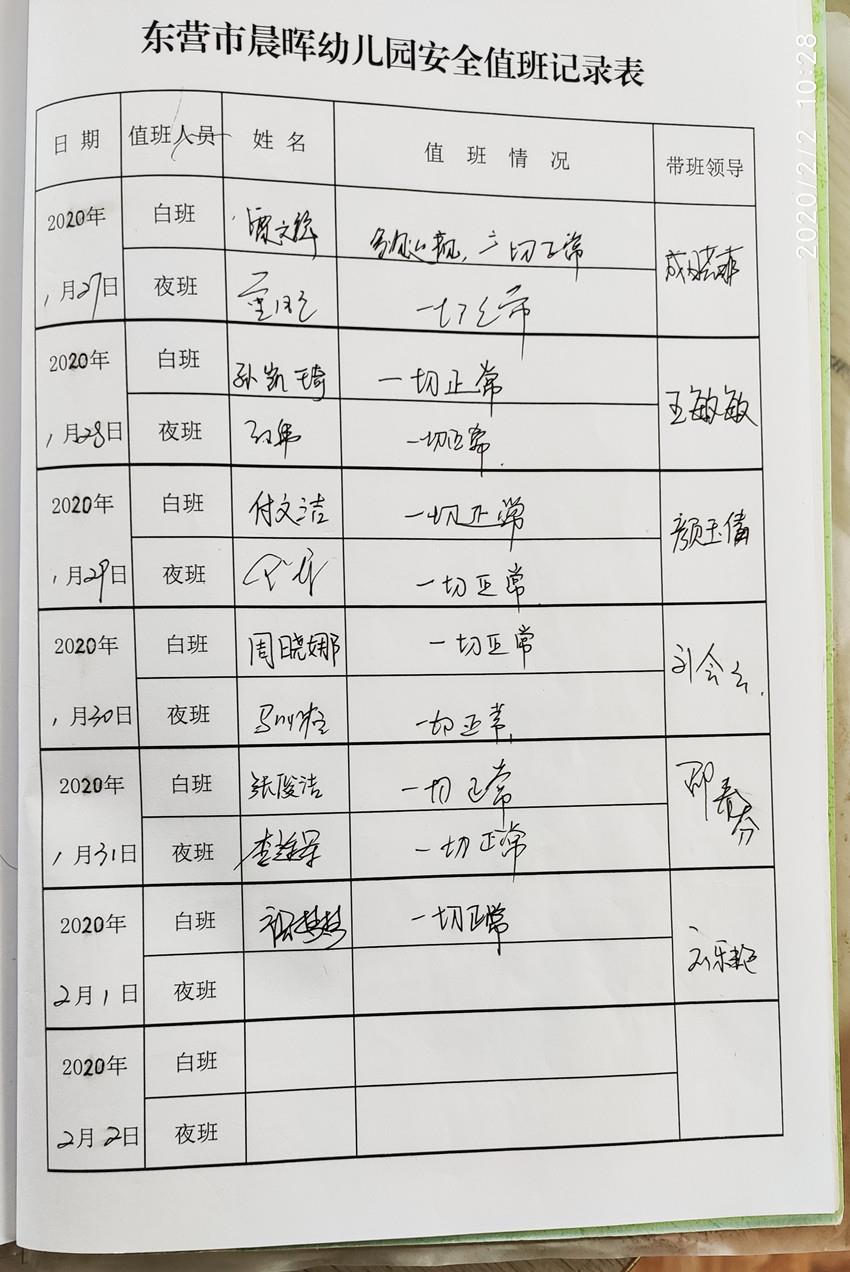 东营市晨晖幼儿园安全值班记录表
2020/2/2 10:28
日期 值班人员 姓名 值班情况 带班领导
2020年 白班 一切正常
1月27日 夜班 一切正常
2020年 白班 孙凯琦 一切正常 王敏敏
1月28日 夜班 一切正常
2020年 白班 付文洁 一切正常 颜玉倩
1月29日 夜班 一切正常
2020年 白班 周晓娜 一切正常 刘会云
1月30日 夜班 一切正常
2020年 白班 张俊洁 一切正常 邵春芬
1月31日 夜班 一切正常
2020年 白班 一切正常
2月1日 夜班
2020年 白班
2月2日 夜班